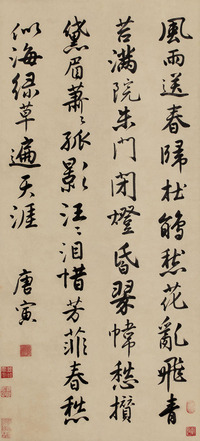 風雨送春歸杜鵑愁花亂飛青
苔滿院朱門閉燈昏翠幃愁攢
黛眉蕭〻孤影汪〻淚惜芳菲春愁
似海綠草遍天涯
唐寅